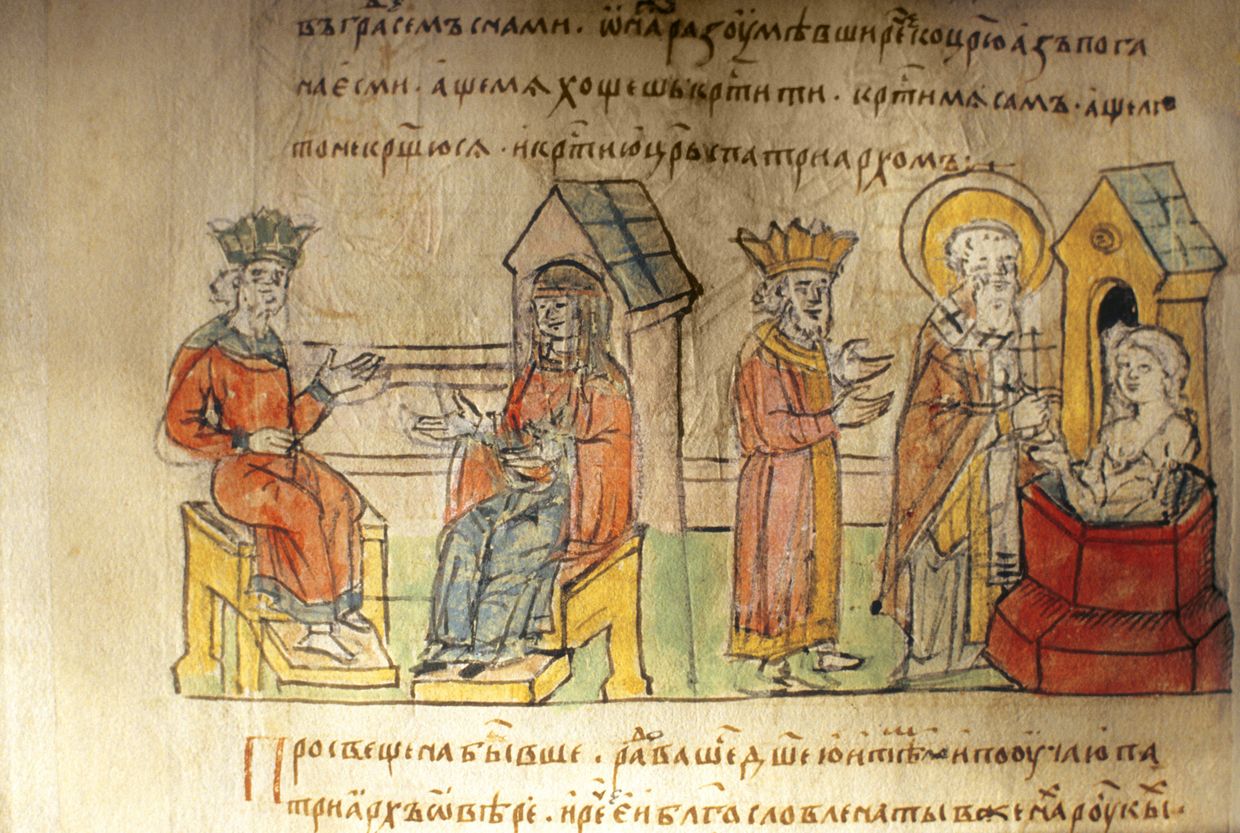 въ градѣ семъ с нами · ѿна разоумѣвши рече ко црю азъ пога
на есми · аще мя хощешь кр҃тити · кр҃ти мя самъ · аще ли
то не крщюся · и кр҃ти ю црь с патриархомъ :
Просвещена бывше · радоваше д҃шею и тѣломъ и пооучаю па
триархъ ѿ вѣре · и рече еи блг҃ословлена ты в женах роускы